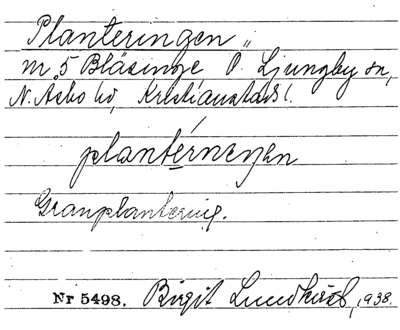 Planteringen „
m. 5 Bläsinge, Ö. Ljungby sn,
N. Åsbo hd, Kristianstads l.
planterneŋen
Granplantering.
Nr 5498. Birgit Lundkvist, 1938.